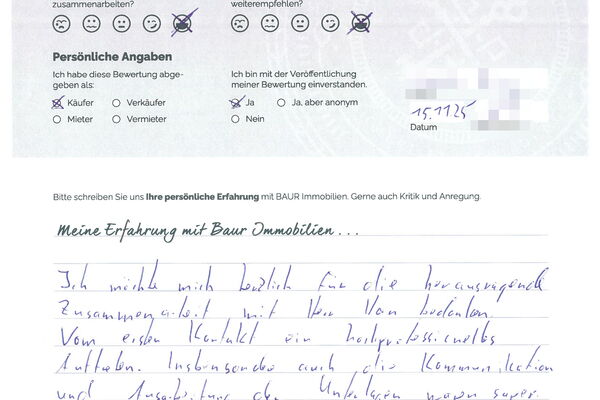 zusammenarbeiten?
weiterempfehlen?
Persönliche Angaben
Ich habe diese Bewertung abge-
geben als:
Käufer
Verkäufer
Mieter
Vermieter
Ich bin mit der Veröffentlichung
meiner Bewertung einverstanden.
Ja
Ja, aber anonym
Nein
15.11.25
Datum
Bitte schreiben Sie uns Ihre persönliche Erfahrung mit BAUR Immobilien. Gerne auch Kritik und Anregung.
Meine Erfahrung mit Baur Immobilien...
Ich möchte mich herzlich für die herausragende
Zusammenarbeit mit Herr Von bedanken.
Vom ersten Kontakt ein
Auftreten. Insbesondere auch die Kommunikation
und Ausarbeitung der Unterlagen waren super.